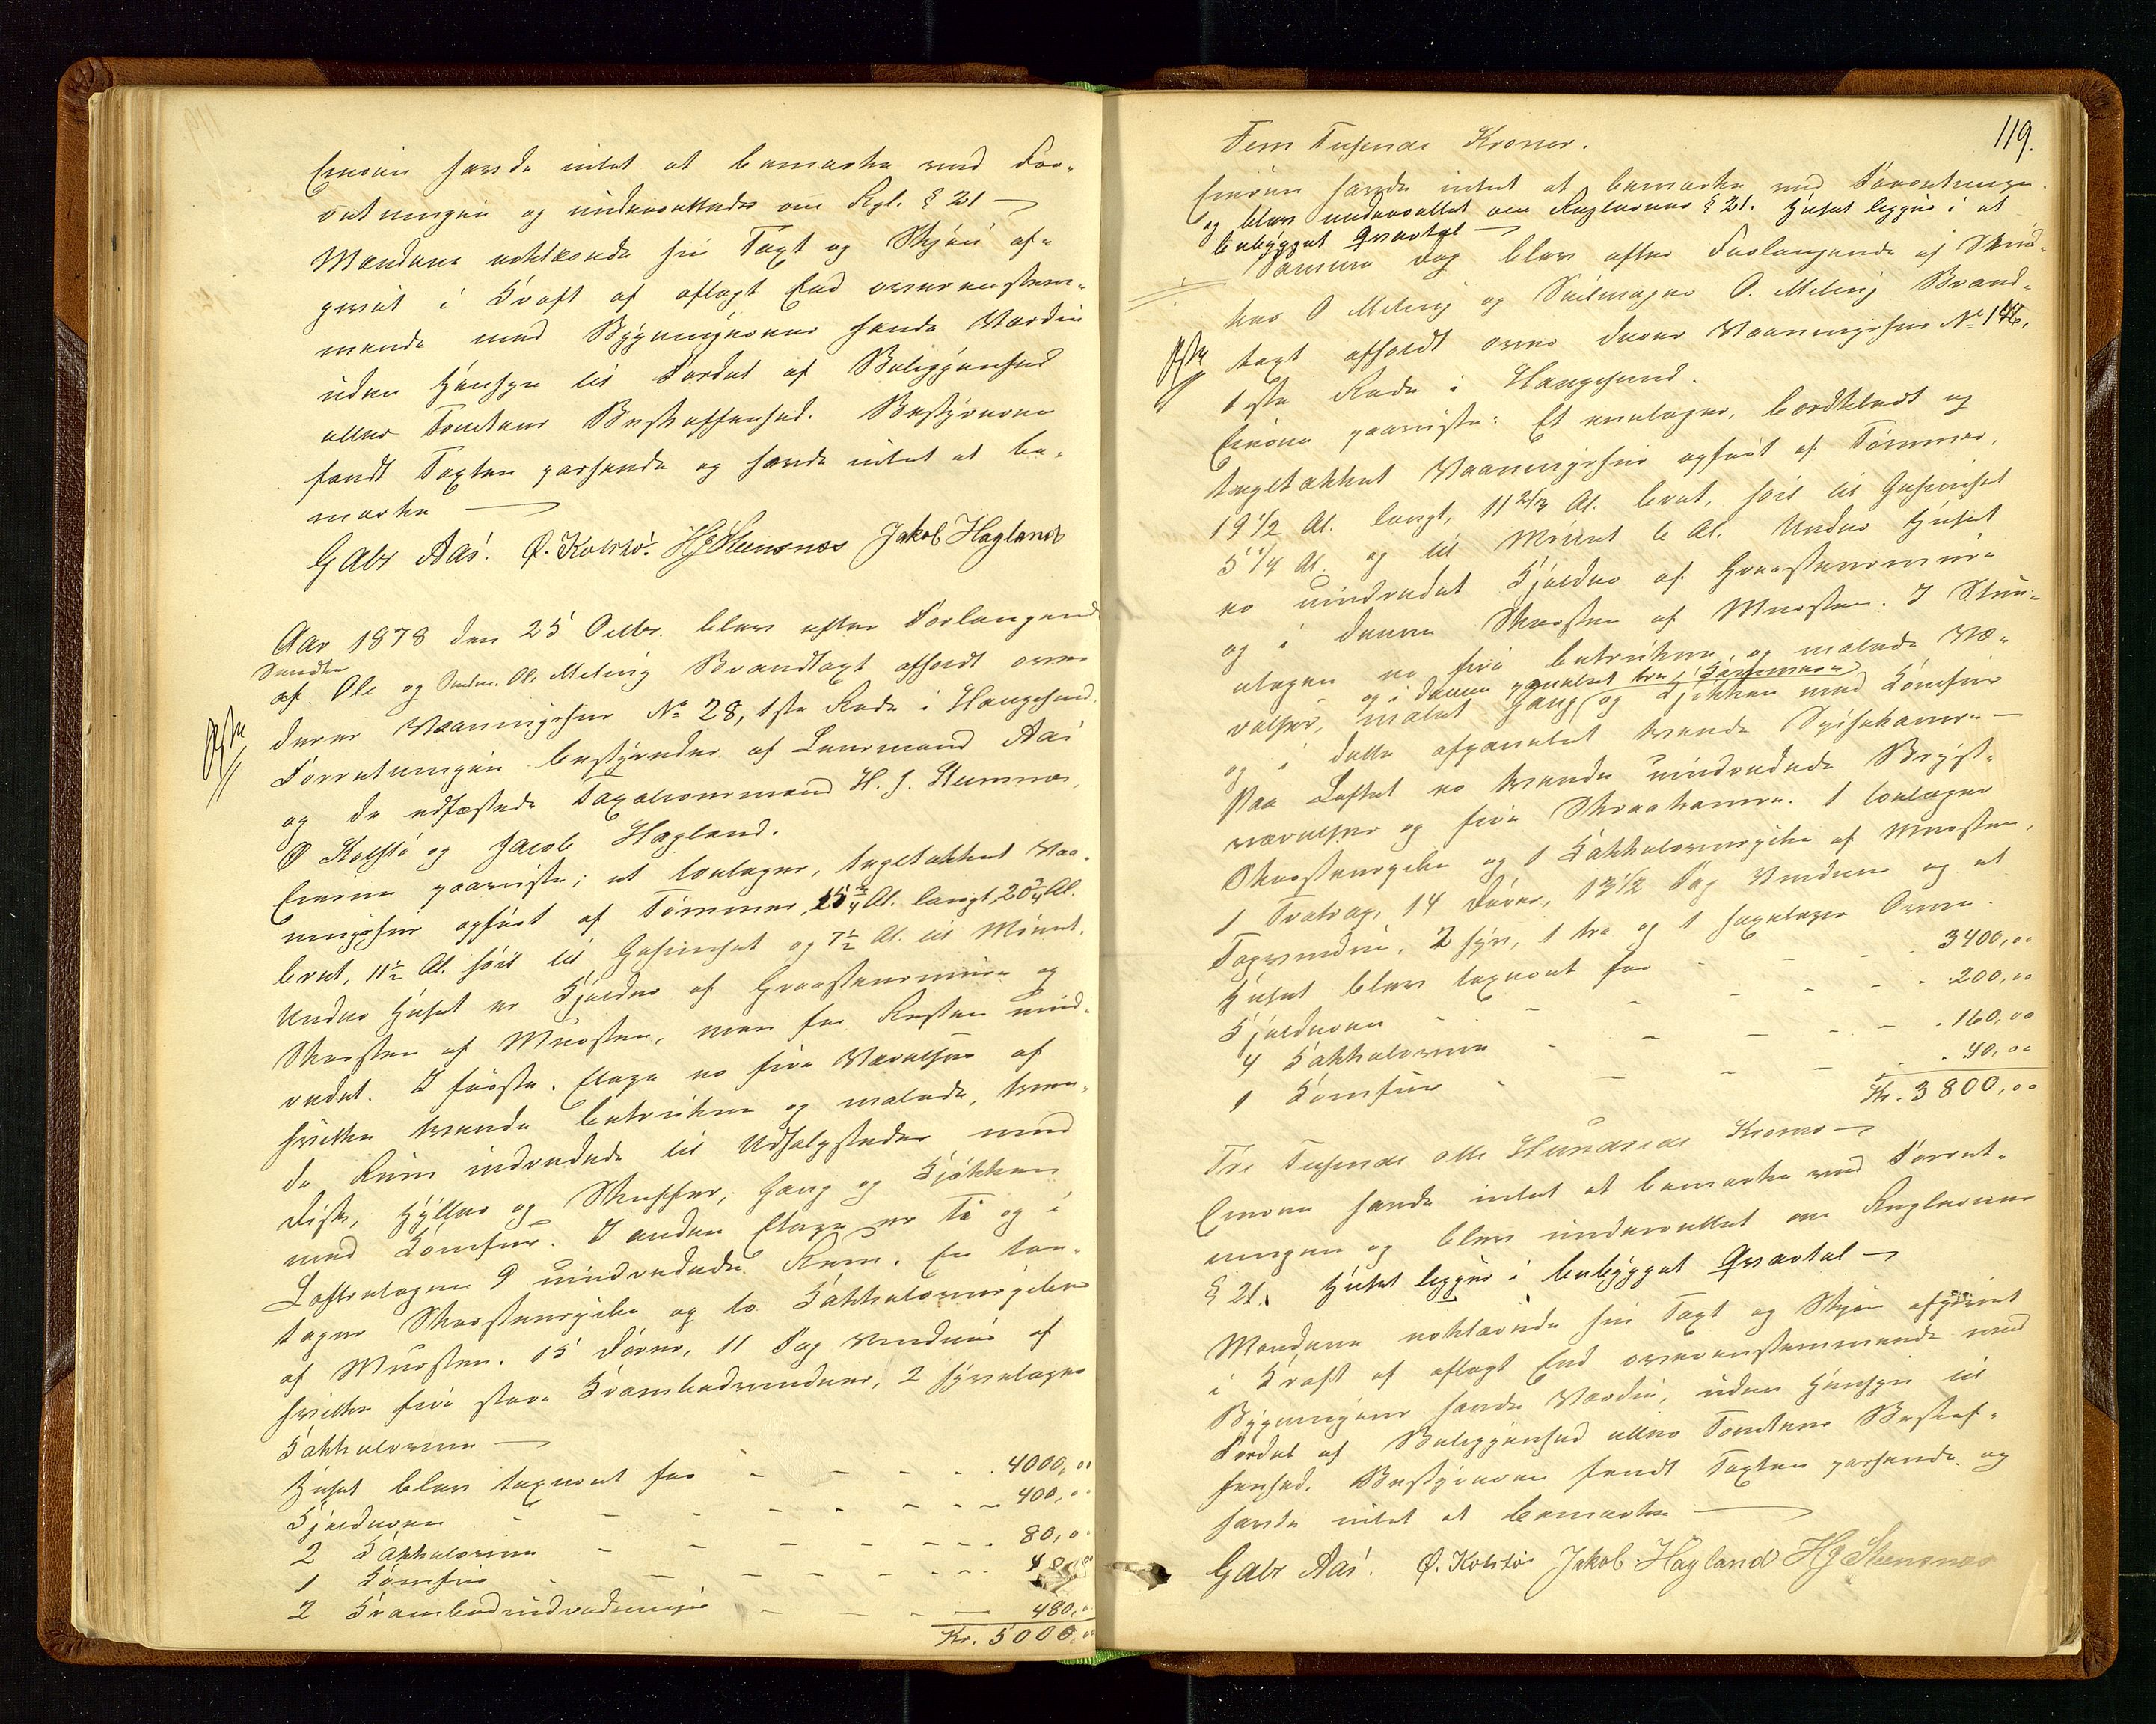 Eieren havde intet at bemærke ved For-
retningen og underrettedes om Rgl. § 21 —
Mændene erklærede sin Taxt og Skjøn af-
givet i Kraft af aflagt Eed overensstem-
mende med Bygningernes sande Værdi
uden Hensyn til Fordel af Beliggenhed
eller Tomtens Beskaffenhed. Bestyreren
fandt Taxten passende og havde intet at be-
mærke —
G Abr Aas. Ø. Kolstø. HJ Steensnæs Jakob Hagland
Aar 1878 den 25 Octbr. blev efter Forlangende
af Ole og Ole Meling Brandtaxt afholdt over
deres Vaaningshus No 28, 1ste Rode i Haugesund.
Forretningen bestyredes af Lensmand Aas
og de edfæstede Taxationsmænd H. J. Steensnæs,
Ø Kolstø og Jacob Hagland.
Eierne paaviste; et toetages, tegltækket Vaa-
ningshus opført af Tømmer, 25 3/4 Al. langt, 20 3/4 Al.
bredt, 11 1/2 Al. høit til Gesimset og 7 1/2 Al. til Mønet.
Under Huset er Kjelder af Graastensmure og
Skorsten af Mursten, men for Resten uind-
redet. I første Etage er fire Værelser af
hvilke tvende betrukne og malede, tven-
de Rum indredede til Udsalgssteder med
Disk, Hylder og Skuffer, Gang og Kjøkken
med Komfur. I anden Etage er ti og i
Loftsetagen 9 uindredede Rum. En toe-
tages Skorstenspibe og to Kakkelovnspiber
af Mursten. 15 Døre, 11 Fag Vinduer af
hvilke fire store Krambodvinduer, 2 fireetages
Kakkelovne —
Huset blev taxeret for - - - - 4000,00
Kjelderen - - - - - - 400,00
2 Kakkelovne - - - - - - 80,00
1 Komfur - - - - - - 40,00
2 Krambodindredninger - - - - 480,00
Kr. 5000,00
119.
Fem Tusende Kroner.
Eieren havde intet at bemærke ved Forretningen
og blev underrettet om Reglernes § 21. Huset ligger i et
bebygget Qvartal —
Samme Dag blev efter Forlangende af
O Meling og Seilmager O. Meling Brand-
taxt afholdt over deres Vaaningshus No 146,
1ste Rode i Haugesund.
Eierne paaviste: Et enetages, bordklædt og
tegltækket Vaaningshus opført af Tømmer,
19 1/2 Al. langt, 11 2/3 Al. bredt, høit til Gesimset
5 1/4 Al. og til Mønet 6 Al. Under Huset
er uindredet Kjelder af Graastensmure
og i denne Skorsten af Mursten. I Stue-
etagen er fire betrukne og malede Væ-
og i denne panelet
relser, malet Gang og Kjøkken med Komfur
og i dette afpanelet tvende Spisekamre —
Paa Loftet er tvende uindredede Kvist-
værelser og fire Skraakamre. 1 toetages
Skorstenspibe og 1 Kakkelovnspibe af Mursten,
1 Trætrap, 14 Døre, 13 1/2 Fag Vinduer og et
Tagvindu, 2 fire, 1 tre og 1 sexetages Ovne.
Huset blev taxeret for - - - 3400,00
Kjelderen - - - - - - 200,00
4 Kakkelovne - - - - - 160,00
1 Komfur - - - - - 40,00
Kr. 3800,00
Tre Tusende otte Hundrede Kroner —
Eierne havde intet at bemærke ved Forret-
ningen og blev underrettet om Reglernes
§ 21. Huset ligger i bebygget Qvartal —
Mændene erklærede sin Taxt og Skjøn afgivet
i Kraft af aflagt Eed overensstemmende med
Bygningens sande Værdi, uden Hensyn til
Fordel af Beliggenhed eller Tomtens Beskaf-
fenhed. Bestyreren fandt Taxten passende og
havde intet at bemærke —
G Abr Aas. Ø. Kolstø Jakob Hagland HJ Steensnæs